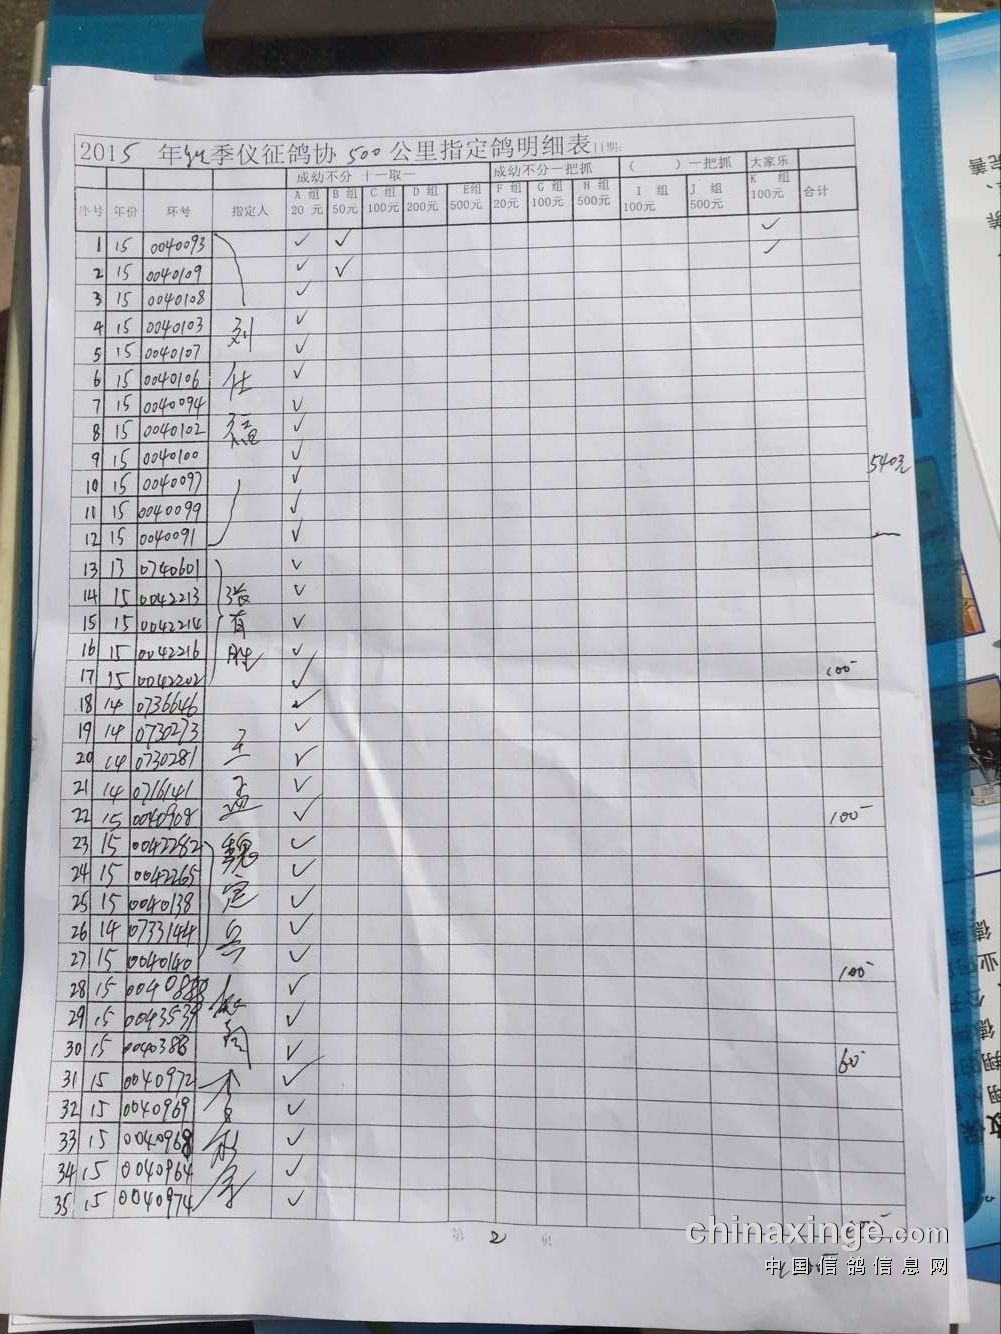 2015 年秋季仪征鸽协 500 公里指定鸽明细表 日期:
成幼不分 十一取一 成幼不分一把抓 ( )一把抓 大家乐
序号 年份 环号 指定人 A 组 20 元 B 组 50元 C 组 100元 D 组 200元 E组 500元 F 组 20元 G 组 100元 H 组 500元 I 组 100元 J 组 500元 K 组 100元 合计
1 15 0040093 ✓ ✓ ✓
2 15 0040109 ✓ ✓ ✓
3 15 0040108 ✓
4 15 0040103 刘 ✓
5 15 0040107 ✓
6 15 0040106 仕 ✓
7 15 0040094 ✓
8 15 0040102 ✓
9 15 0040100 ✓ 540元
10 15 0040097 ✓
11 15 0040099 ✓
12 15 0040091 ✓
13 13 0740601 ✓
14 15 0042213 张 ✓
15 15 0042214 有 ✓
16 15 0042216 胜 ✓
17 15 0042202 ✓ 100
18 14 0736646 ✓
19 14 0730273 王 ✓
20 14 0730281 ✓
21 14 0716141 孟 ✓
22 15 0040908 ✓ 100
23 15 0042282 魏 ✓
24 15 0042265 ✓
25 15 0040138 定 ✓
26 14 0733144 兵 ✓
27 15 0040140 ✓ 100
28 15 ✓
29 15 0043539 ✓
30 15 0040388 ✓ 60
31 15 0040972 ✓
32 15 0040969 ✓
33 15 0040968 ✓
34 15 0040964 ✓
35 15 0040974 ✓ 100
第 2 页
chinaxinge.com
中国信鸽信息网